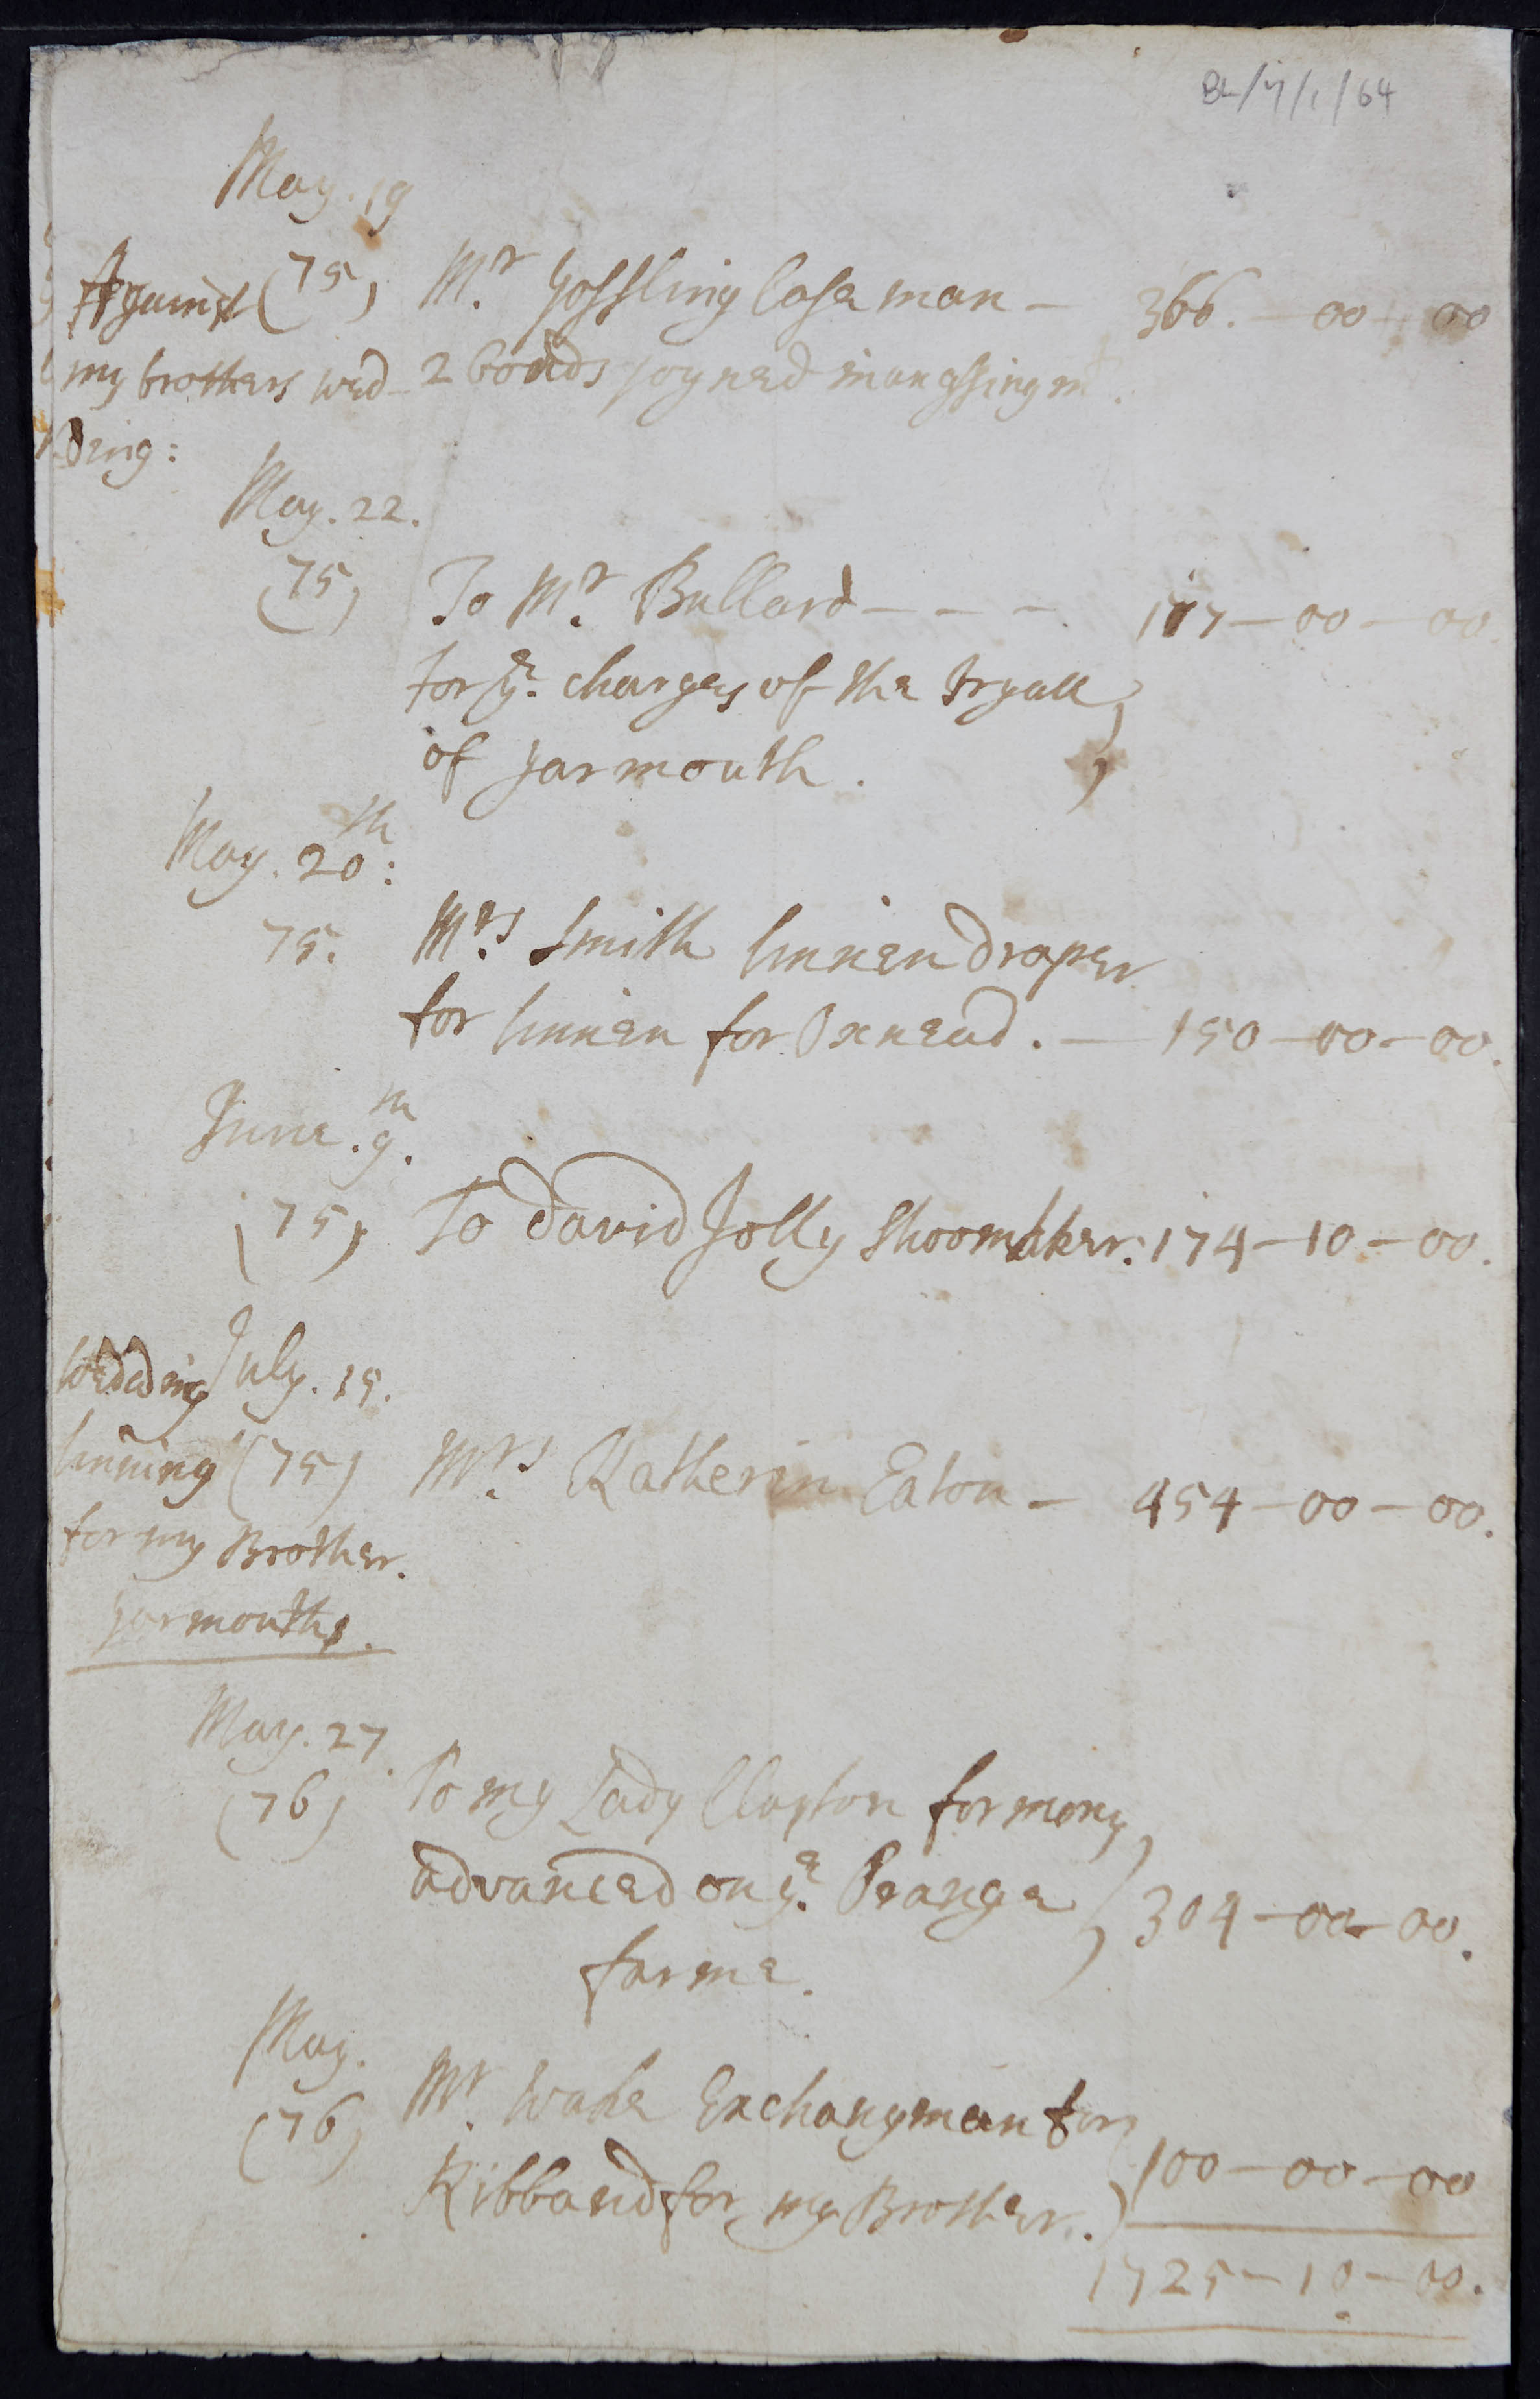 BL/Y/1/64
May. 19
Against (75) Mr. Gossling Lase man – 366. – 00 – 00
my brothers wed- 2 bonds joyned in on assingmt.
ding:
May. 22.
(75) To Mr. Bullard – – – 177 – 00 – 00.
for ye. charges of the tryall
of yarmouth.
May. 20th:
75. Mrs. Smith linnen draper
for linnen for Oxnead. – 150 – 00 – 00.
June. 9th.
(75) To david Jolly Shoomaker. 174 – 10 – 00.
Wedding July. 15.
linning (75) Mrs. Katherin Eaton – 454 – 00 – 00.
for my Brother.
yarmouths.
May. 27.
(76) To my Lady Clayton for mony
advanced on ye. 304 – 00 – 00.
farme.
May.
(76) Mr. Wake Exchangman for
Ribband for my Brother. 100 – 00 – 00
1725 – 10 – 00.